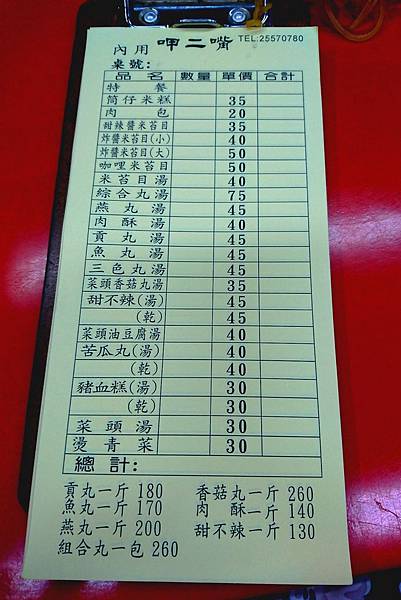 內用 呷二嘴 TEL:25570780
桌號:
品名 數量 單價 合計
特餐
筒仔米糕 35
肉包 20
甜辣醬米苔目 35
炸醬米苔目(小) 40
炸醬米苔目(大) 50
咖哩米苔目 50
米苔目湯 40
綜合丸湯 75
燕丸湯 45
肉酥湯 40
貢丸湯 45
魚丸湯 45
三色丸湯 45
菜頭香菇丸湯 35
甜不辣(湯) 45
(乾) 45
菜頭油豆腐湯 40
苦瓜丸(湯) 40
(乾) 40
豬血糕(湯) 30
(乾) 30
菜頭湯 30
燙青菜 30
總計:
貢丸一斤 180 香菇丸一斤 260
魚丸一斤 170 肉酥一斤 140
燕丸一斤 200 甜不辣一斤 130
組合丸一包 260